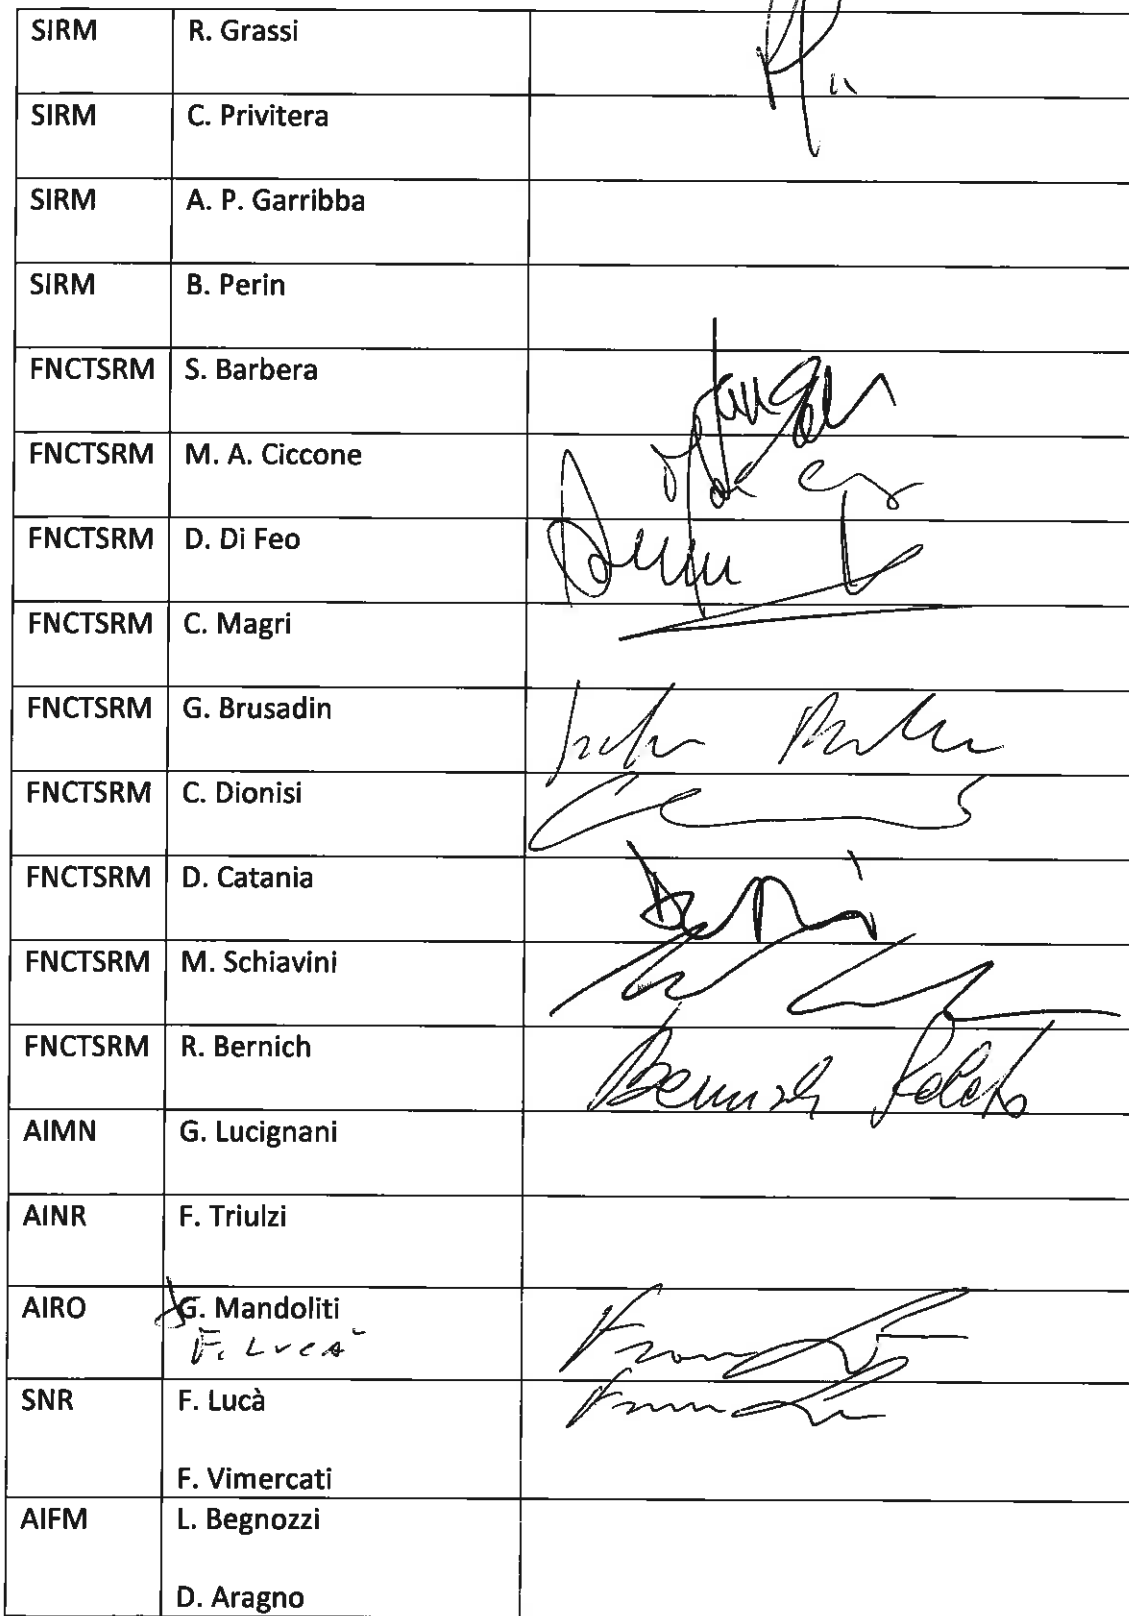 SIRM R. Grassi
SIRM C. Privitera
SIRM A. P. Garribba
SIRM B. Perin
FNCTSRM S. Barbera
FNCTSRM M. A. Ciccone
FNCTSRM D. Di Feo
FNCTSRM C. Magri
FNCTSRM G. Brusadin
FNCTSRM C. Dionisi
FNCTSRM D. Catania
FNCTSRM M. Schiavini
FNCTSRM R. Bernich
AIMN G. Lucignani
AINR F. Triulzi
AIRO G. Mandoliti
F. Lucà
SNR F. Lucà
F. Vimercati
AIFM L. Begnozzi
D. Aragno